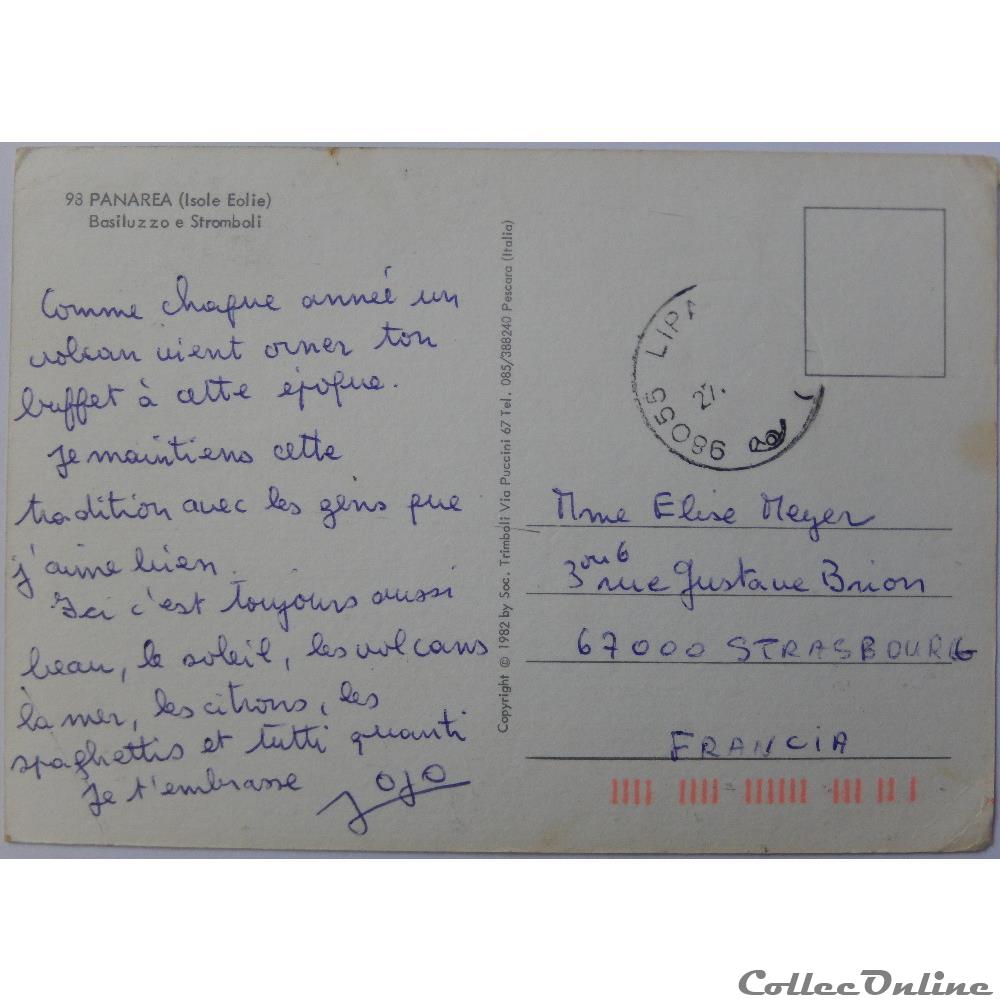 93 PANAREA (Isole Eolie)
Basiluzzo e Stromboli
Comme chaque année un
volcan vient orner ton
buffet à cette époque.
Je maintiens cette
tradition avec les gens que
j'aime bien.
Ici c'est toujours aussi
beau, le soleil, les volcans
la mer, les citrons, les
spaghettis et tutti quanti
Je t'embrasse Jojo
Copyright © 1982 by Soc. Trimboli Via Puccini 67 Tel. 085/388240 Pescara (Italia)
98055 LIPA
27.
Mme Elise Meyer
3 ou 6 rue Gustave Brion
67000 STRASBOURG
FRANCIA
CollecOnline